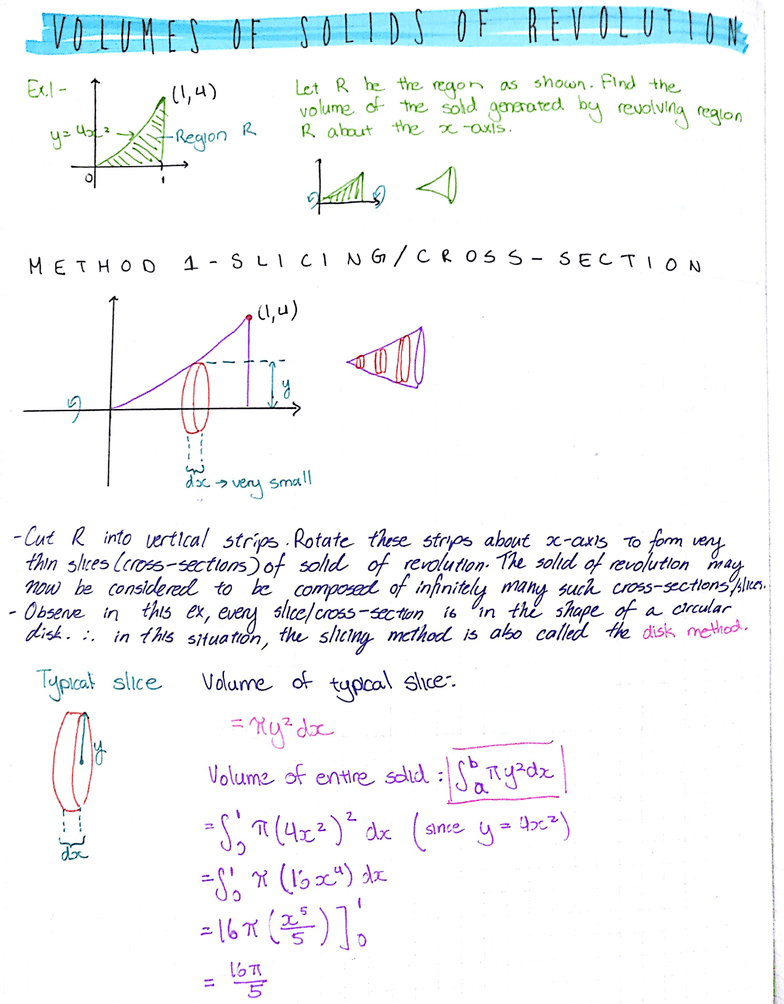 VOLUMES OF SOLIDS OF REVOLUTION
Ex.1-
(1,4)
y=4x²
Region R
0
1
Let R be the regon as shown. Find the
volume of the solid generated by revolving region
R about the x-axis.
METHOD 1-SLICING/CROSS-SECTION
(1,4)
y
dx → very small
-Cut R into vertical strips. Rotate these strips about x-axis to form very
thin slices (cross-sections) of solid of revolution. The solid of revolution may
now be considered to be composed of infinitely many such cross-sections/slices.
- Observe in this ex, every slice/cross-section is in the shape of a circular
disk. ∴ in this situation, the slicing method is also called the disk method.
Typical slice
y
dx
Volume of typical slice:.
= πy²dx
Volume of entire solid : ∫ₐᵇ πy²dx
=∫₀¹ π(4x²)² dx (since y = 4x²)
=∫₀¹ π (16x⁴) dx
=16π (x⁵/5) ]₀¹
= 16π/5